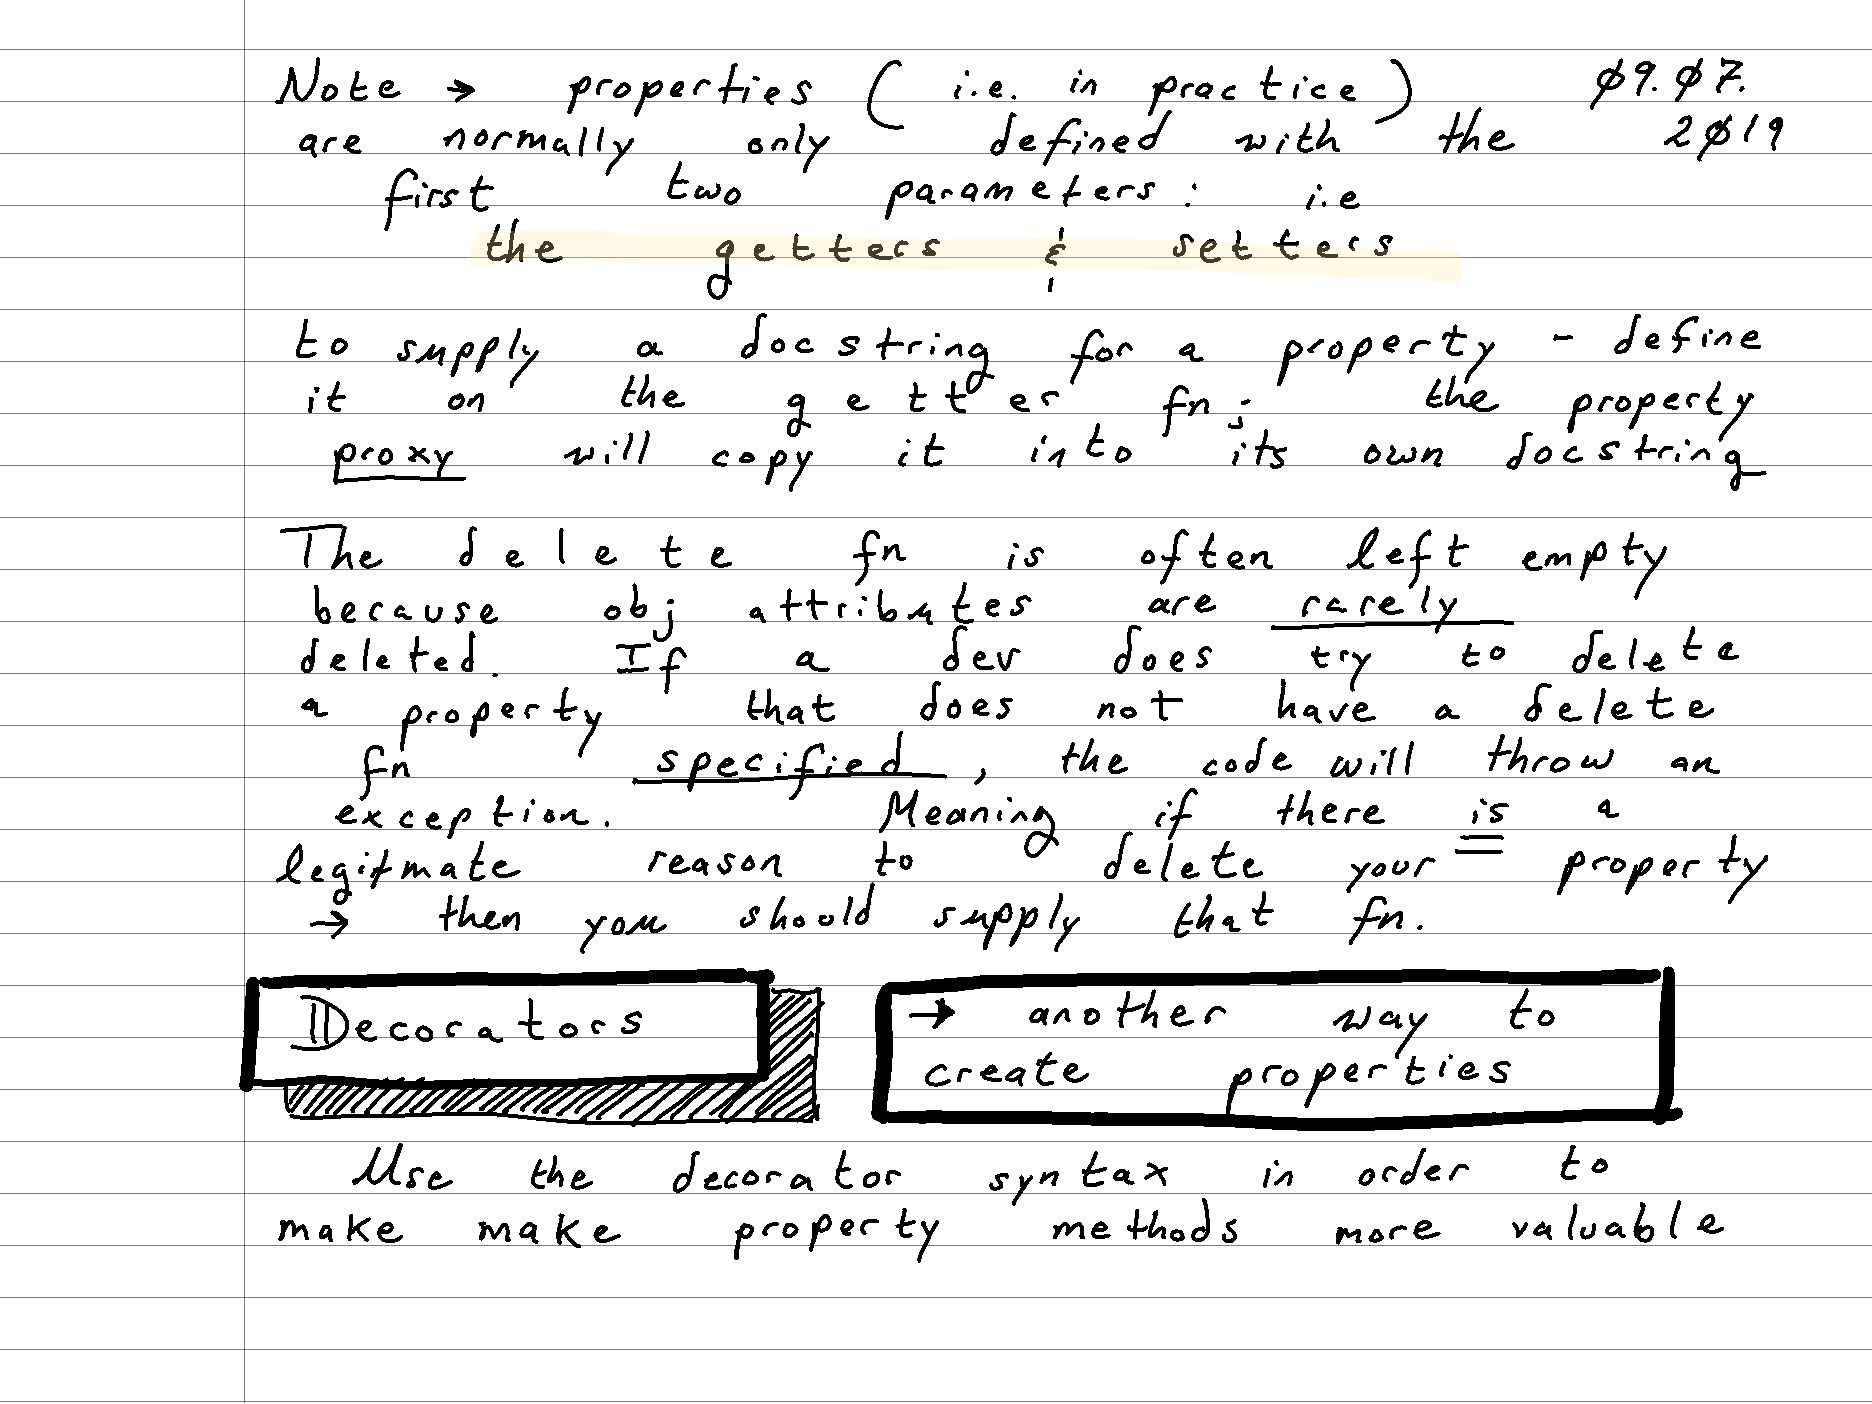 Note → properties ( i.e. in practice ) ø9.ø7.
are normally only defined with the 2ø19
first two parameters : i.e
the getters & setters
to supply a docstring for a property - define
it on the getter fn ; the property
proxy will copy it into its own docstring
The delete fn is often left empty
because obj attributes are rarely
deleted. If a dev does try to delete
a property that does not have a delete
fn specified , the code will throw an
exception. Meaning if there is a
legitmate reason to delete your property
→ then you should supply that fn.
Decorators
→ another way to
create properties
Use the decorator syntax in order to
make make property methods more valuable